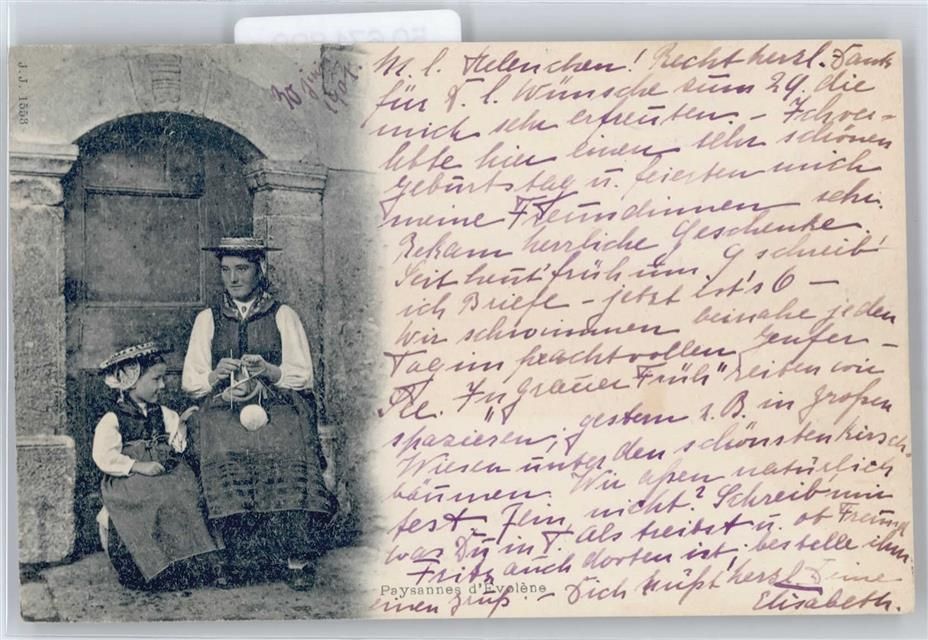 J. J. 1553
30 juin
1901.
M. l. Helenchen! Recht herzl. Dank
für D. l. Wünsche zum 29. die
mich sehr erfreuten. – Ich ver-
lebte hier einen sehr schönen
Geburtstag u. feierten mich
meine Freundinnen sehr.
Bekam herrliche Geschenke.
Seit heut' früh um 9 schreib'
ich Briefe – jetzt ist's 6 –
Wir schwimmen beinahe jeden
Tag im prachtvollen Genfer-
See. In grauer Früh" reiten wir
spazieren, gestern z. B. in großen
Wiesen unter den schönsten Kirsch-
bäumen. Wir aßen natürlich
fest. Fein, nicht? Schreib' mir
was Du in T. als treibst u. ob Freund
Fritz auch dorten ist, bestelle ihm
einen Gruß. – Dich küßt herzl. Deine
Elisabeth.
Paysannes d'Evolène